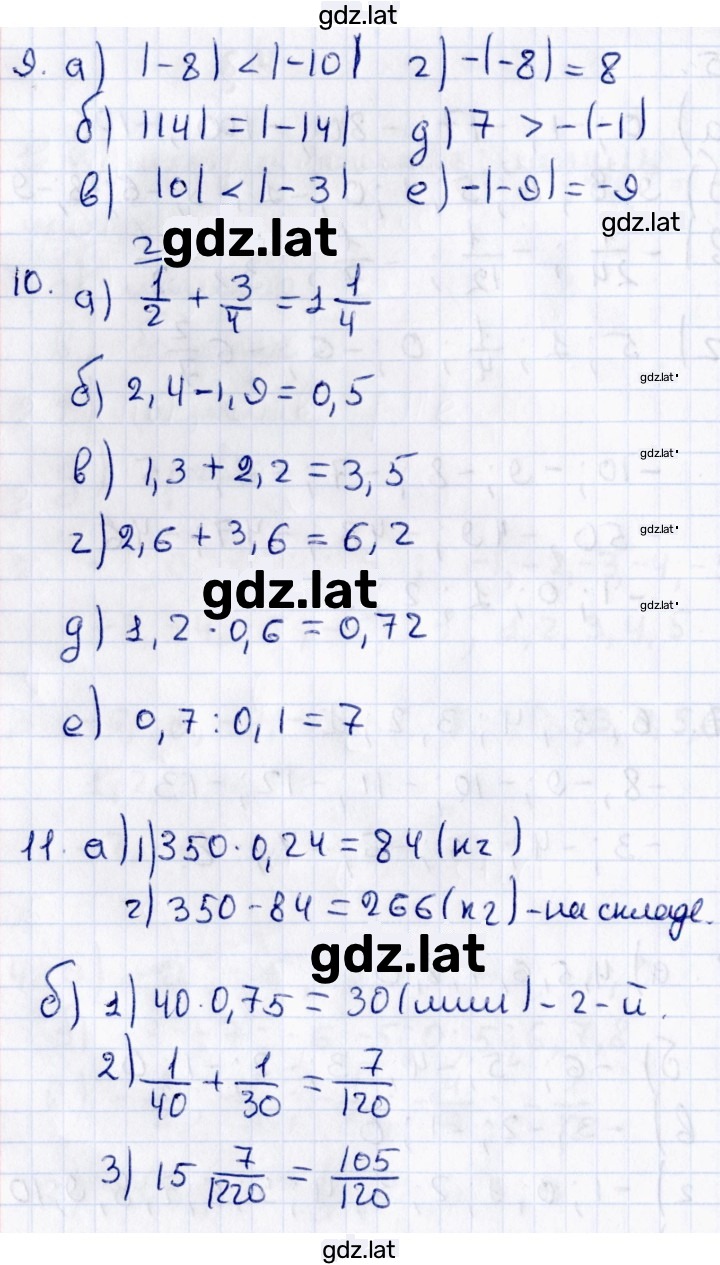 gdz.lat
9. а) |-8| < |-10| г) -(-8) = 8
б) |14| = |-14| д) 7 > -(-1)
в) |0| < |-3| е) -|-9| = -9
gdz.lat
2 gdz.lat
10. а) 1/2 + 3/4 = 1 1/4
б) 2,4-1,9 = 0,5
gdz.lat
в) 1,3 + 2,2 = 3,5
gdz.lat
г) 2,6 + 3,6 = 6,2
gdz.lat
gdz.lat
gdz.lat
д) 1,2 · 0,6 = 0,72
е) 0,7 : 0,1 = 7
11. а) 1) 350 · 0,24 = 84 (кг)
2) 350 - 84 = 266 (кг) - на складе.
gdz.lat
б) 1) 40 · 0,75 = 30 (мин) - 2-й.
2) 1/40 + 1/30 = 7/120
3) 15 7/1220 = 105/120
gdz.lat